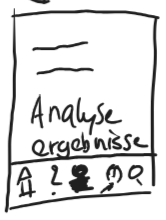 Analyse
ergebnisse